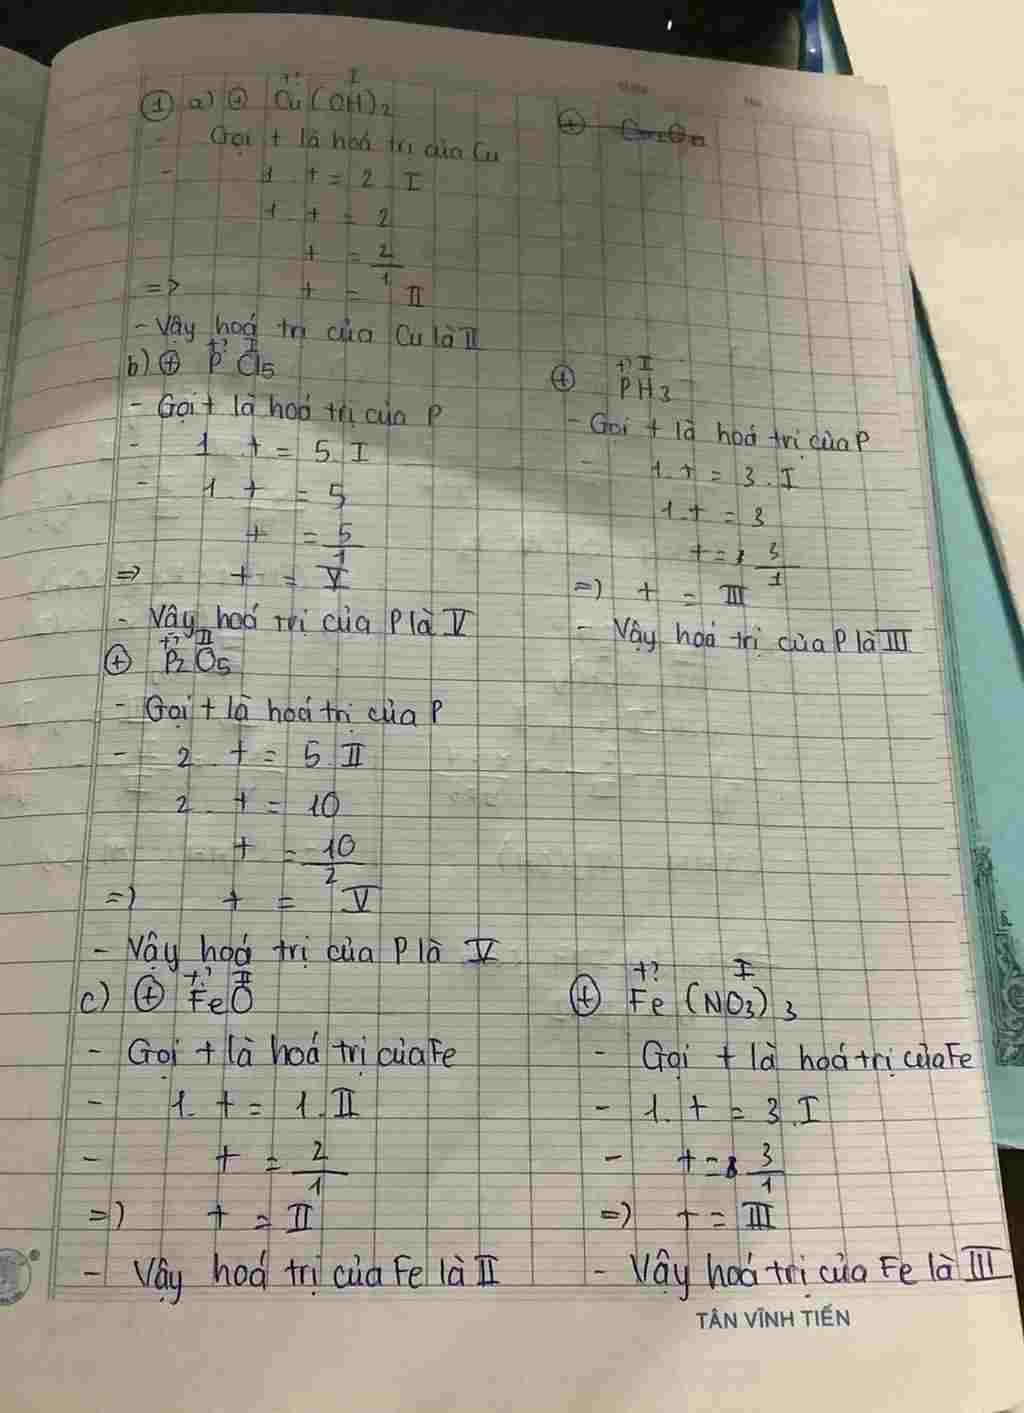 ① a) ⊕ Cu (OH)₂
t? I
- Gọi t là hoá trị của Cu
- 1 . t = 2 . I
1 . t = 2
t = 2/1
=> t = II
- Vậy hoá trị của Cu là II
b) ⊕ P Cl₅
t? I
- Gọi t là hoá trị của P
- 1 . t = 5 . I
- 1 . t = 5
t = 5/1
=> t = V
- Vậy hoá trị của P là V
⊕ P₂ O₅
t? II
- Gọi t là hoá trị của P
- 2 . t = 5 . II
2 . t = 10
t = 10/2
=> t = V
- Vậy hoá trị của P là V
⊕ PH₃
t? I
- Gọi t là hoá trị của P
- 1 . t = 3 . I
1 . t = 3
t = 3/1
=> t = III
- Vậy hoá trị của P là III
c) ⊕ FeO
t? II
- Gọi t là hoá trị của Fe
- 1 . t = 1 . II
- t = 2/1
=> t = II
- Vậy hoá trị của Fe là II
⊕ Fe (NO₃)₃
t? I
- Gọi t là hoá trị của Fe
- 1 . t = 3 . I
- t = 3/1
=> t = III
- Vậy hoá trị của Fe là III
TÂN VĨNH TIẾN